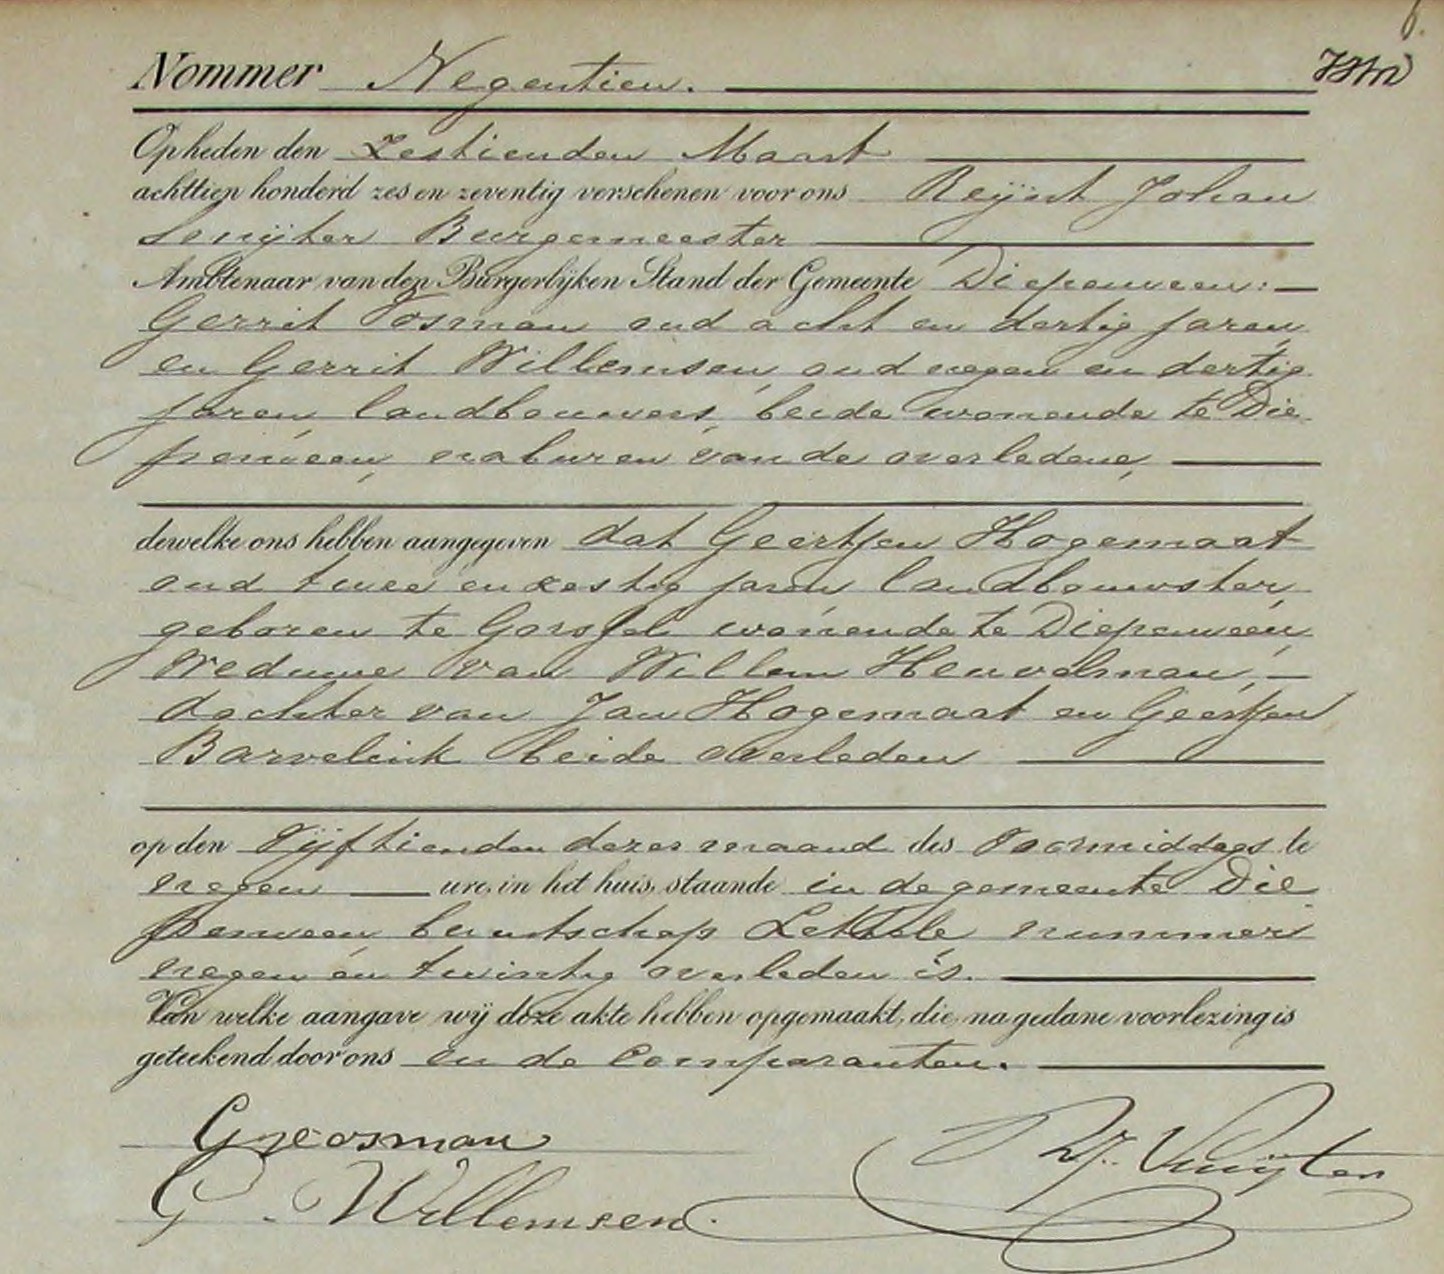 6.
Nommer Negentien.
Op heden den Zestienden Maart
achttien honderd zes en zeventig verschenen voor ons Reijnt Johan
Burgemeester
Ambtenaar van den Burgerlijken Stand der Gemeente Diepenveen:
Gerrit Vosman oud acht en dertig jaren,
en Gerrit Willemsen, oud negen en dertig
jaren, landbouwers, beide wonende te Die
penveen, naburen van de overledene,
dewelke ons hebben aangegeven dat Geertjen Hogemaat
oud twee en zestig jaren landbouwster,
geboren te Gorssel wonende te Diepenveen,
Weduwe van Willem Heuvelman,
dochter van Jan Hogemaat en Geertjen
Barvelink beide overleden
op den Vijftienden dezer maand des Voormiddags te
negen ure, in het huis, staande in de gemeente Die
penveen buurtschap Lettele nummer
negen en twintig overleden is.
Van welke aangave wij deze akte hebben opgemaakt, die, na gedane voorlezing is
geteekend door ons en de Comparanten.
G Vosman
G. Willemsen.